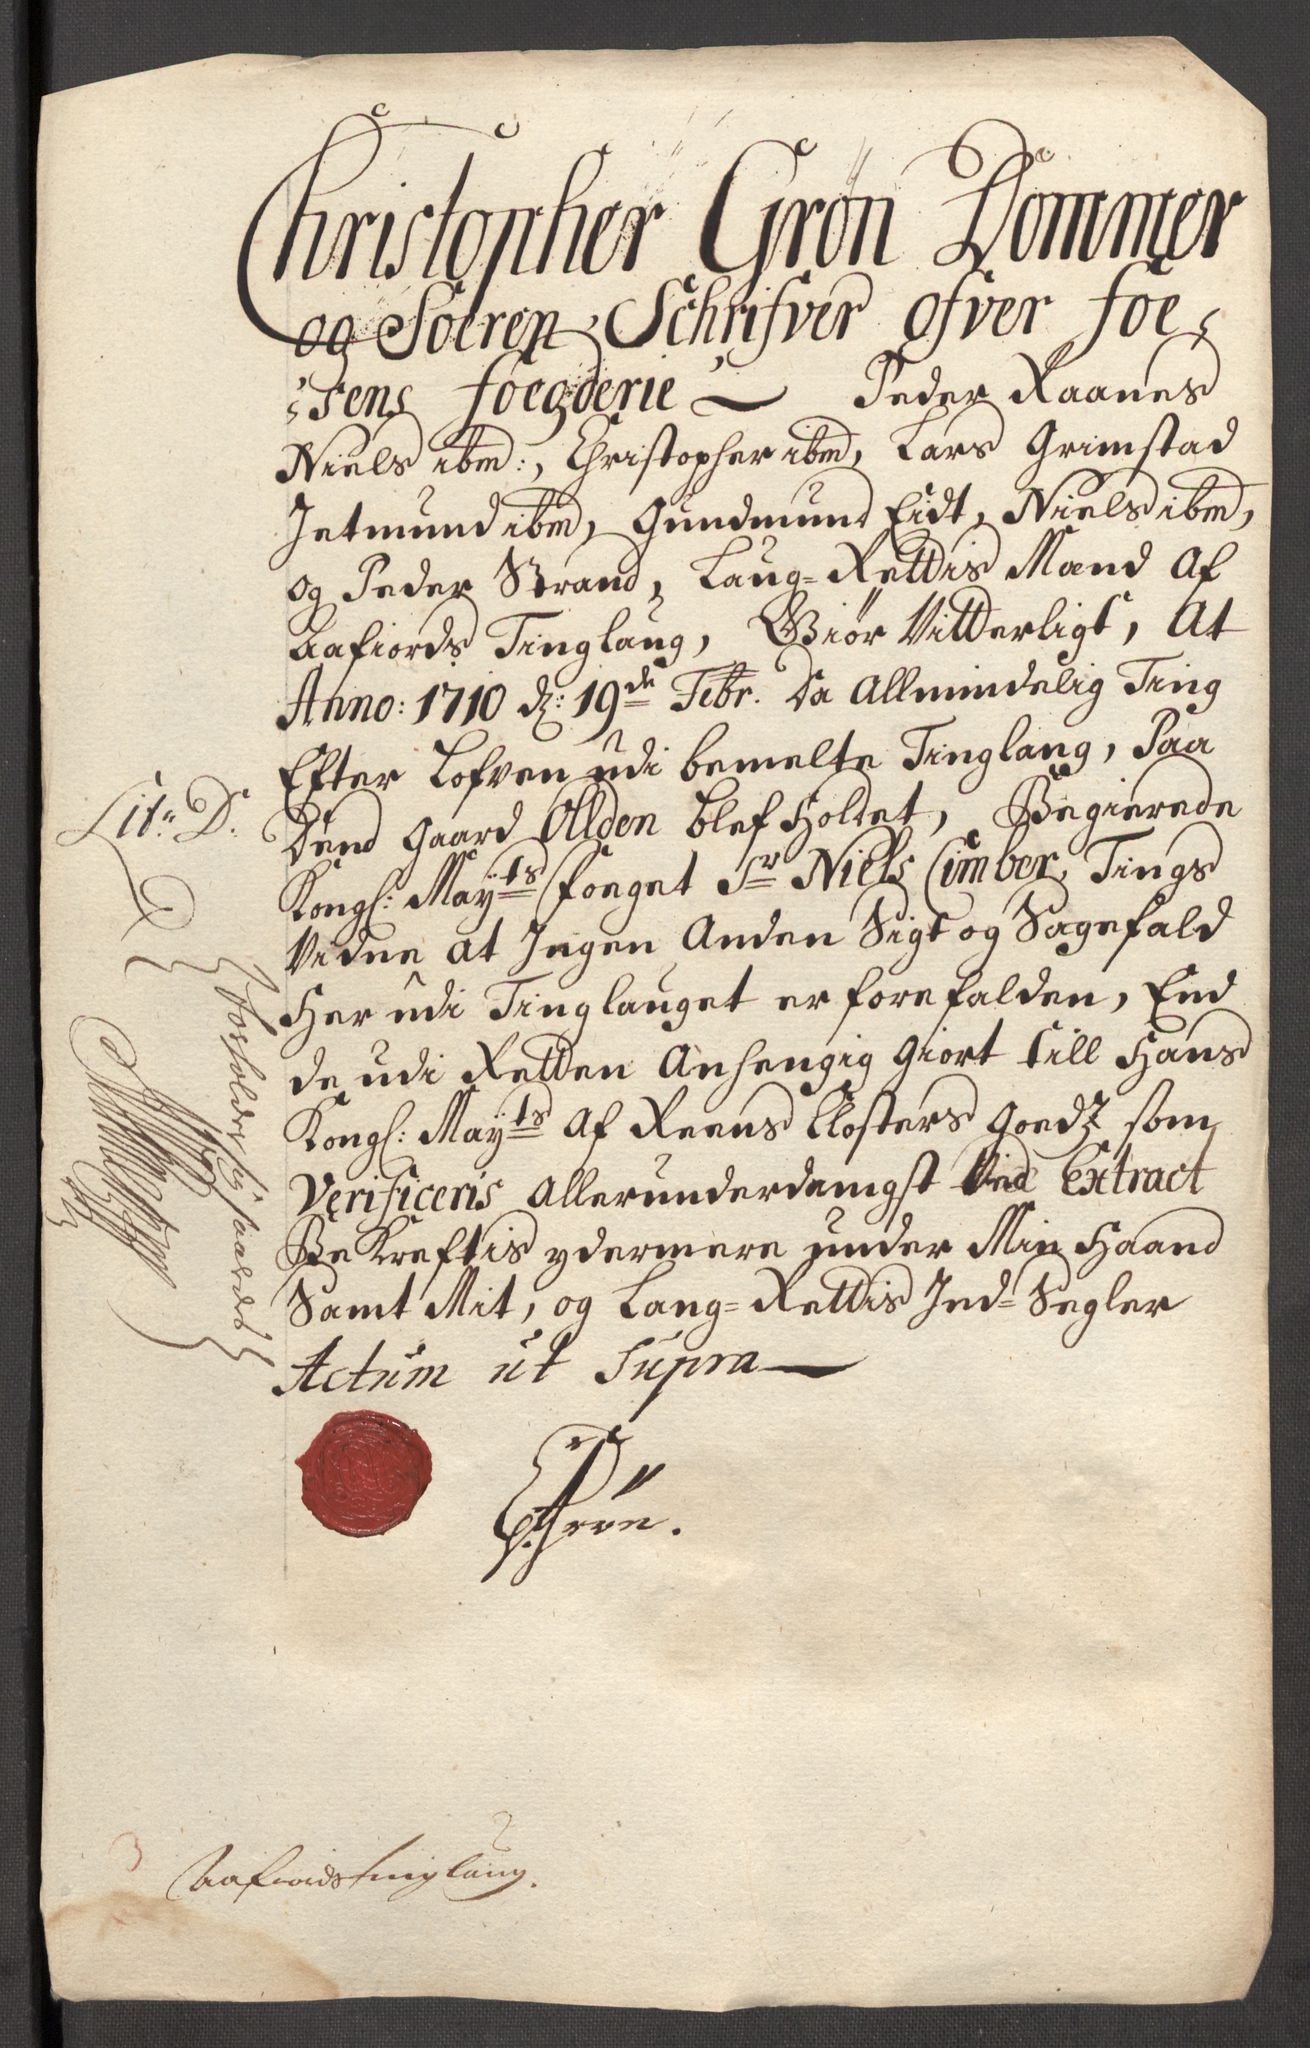 Christopher Grøn Dommer
og Soeren Schrifver ofver foe-
sens foegderie — Peder Raanes
Niels ibm:, Christopher ibm, Lars Grimstad
Jetmund ibm, Gundmund Eidt, Niels ibm,
og Peder Strand, Laug-Rettis Mænd Af
Aafiords Tinglaug, Giör Vitterligt, At
Anno: 1710 d: 19de Febr. Da Allmindelig Ting
Efter Lofven udi bemelte Tinglaug, Paa
Dend Gaard Ollden blef Holdet, Begierede
Kongl: Mayts foeget Sr Niels Cimber, Tings
Vidne at Ingen Anden Sigt og Sagefald
Her udi Tinglauget er forefalden, End
de udi Retten Anhengig Giort till Hans
Kongl: Mayts Af Reens Closters Goedz som
Verificeris Allerunderdanigst Ved Extract
Bekreftis ydermere under Min Haand
Samt Mit, og Laug-Rettis Ind-Segler
Actum ut Supra
Grøn.
Lit: D:
Aafiords tinglaug.